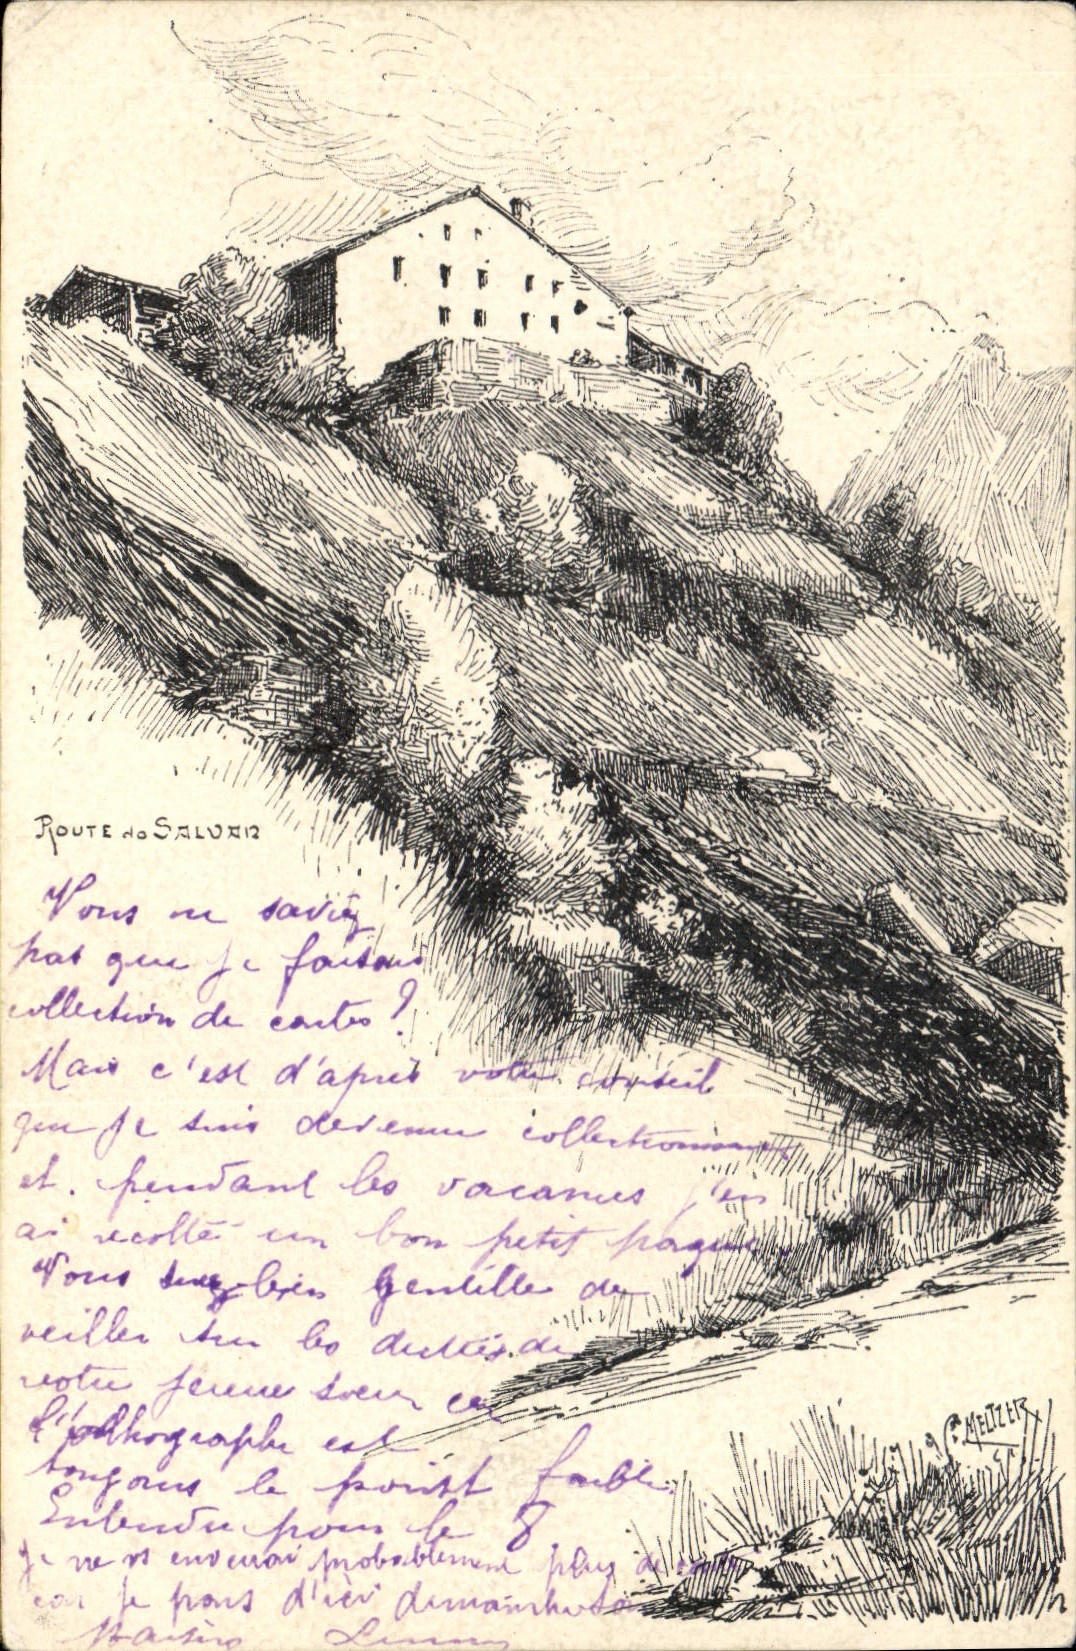 ROUTE de SALVAN
Vous ne saviez
pas que je faisais
collection de cartes?
Mais c'est d'après votre conseil
que je suis devenue collectionneuse
et. pendant les vacances j'en
ai récolté un bon petit paquet.
Vous serez bien gentille de
veiller sur les dictées de
votre jeune soeur car
l'orthographe est
toujours le point faible.
Entendu pour le 8
je ne vs enverrai probablement plus de carte
car je pars d'ici dimanche
MELTZER